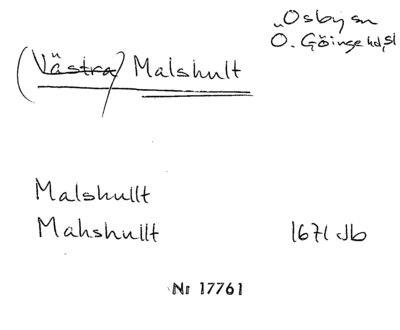 Osby sn
Ö. Göinge hd, sl
(Västra) Malshult
Malshullt
Mahshullt 1671 Jb
Nr 17761